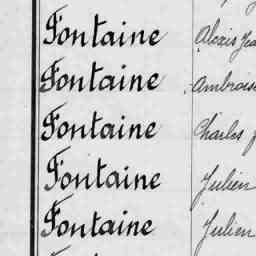 Fontaine Alexis
Fontaine Ambroise
Fontaine Charles
Fontaine Julien
Fontaine Julien